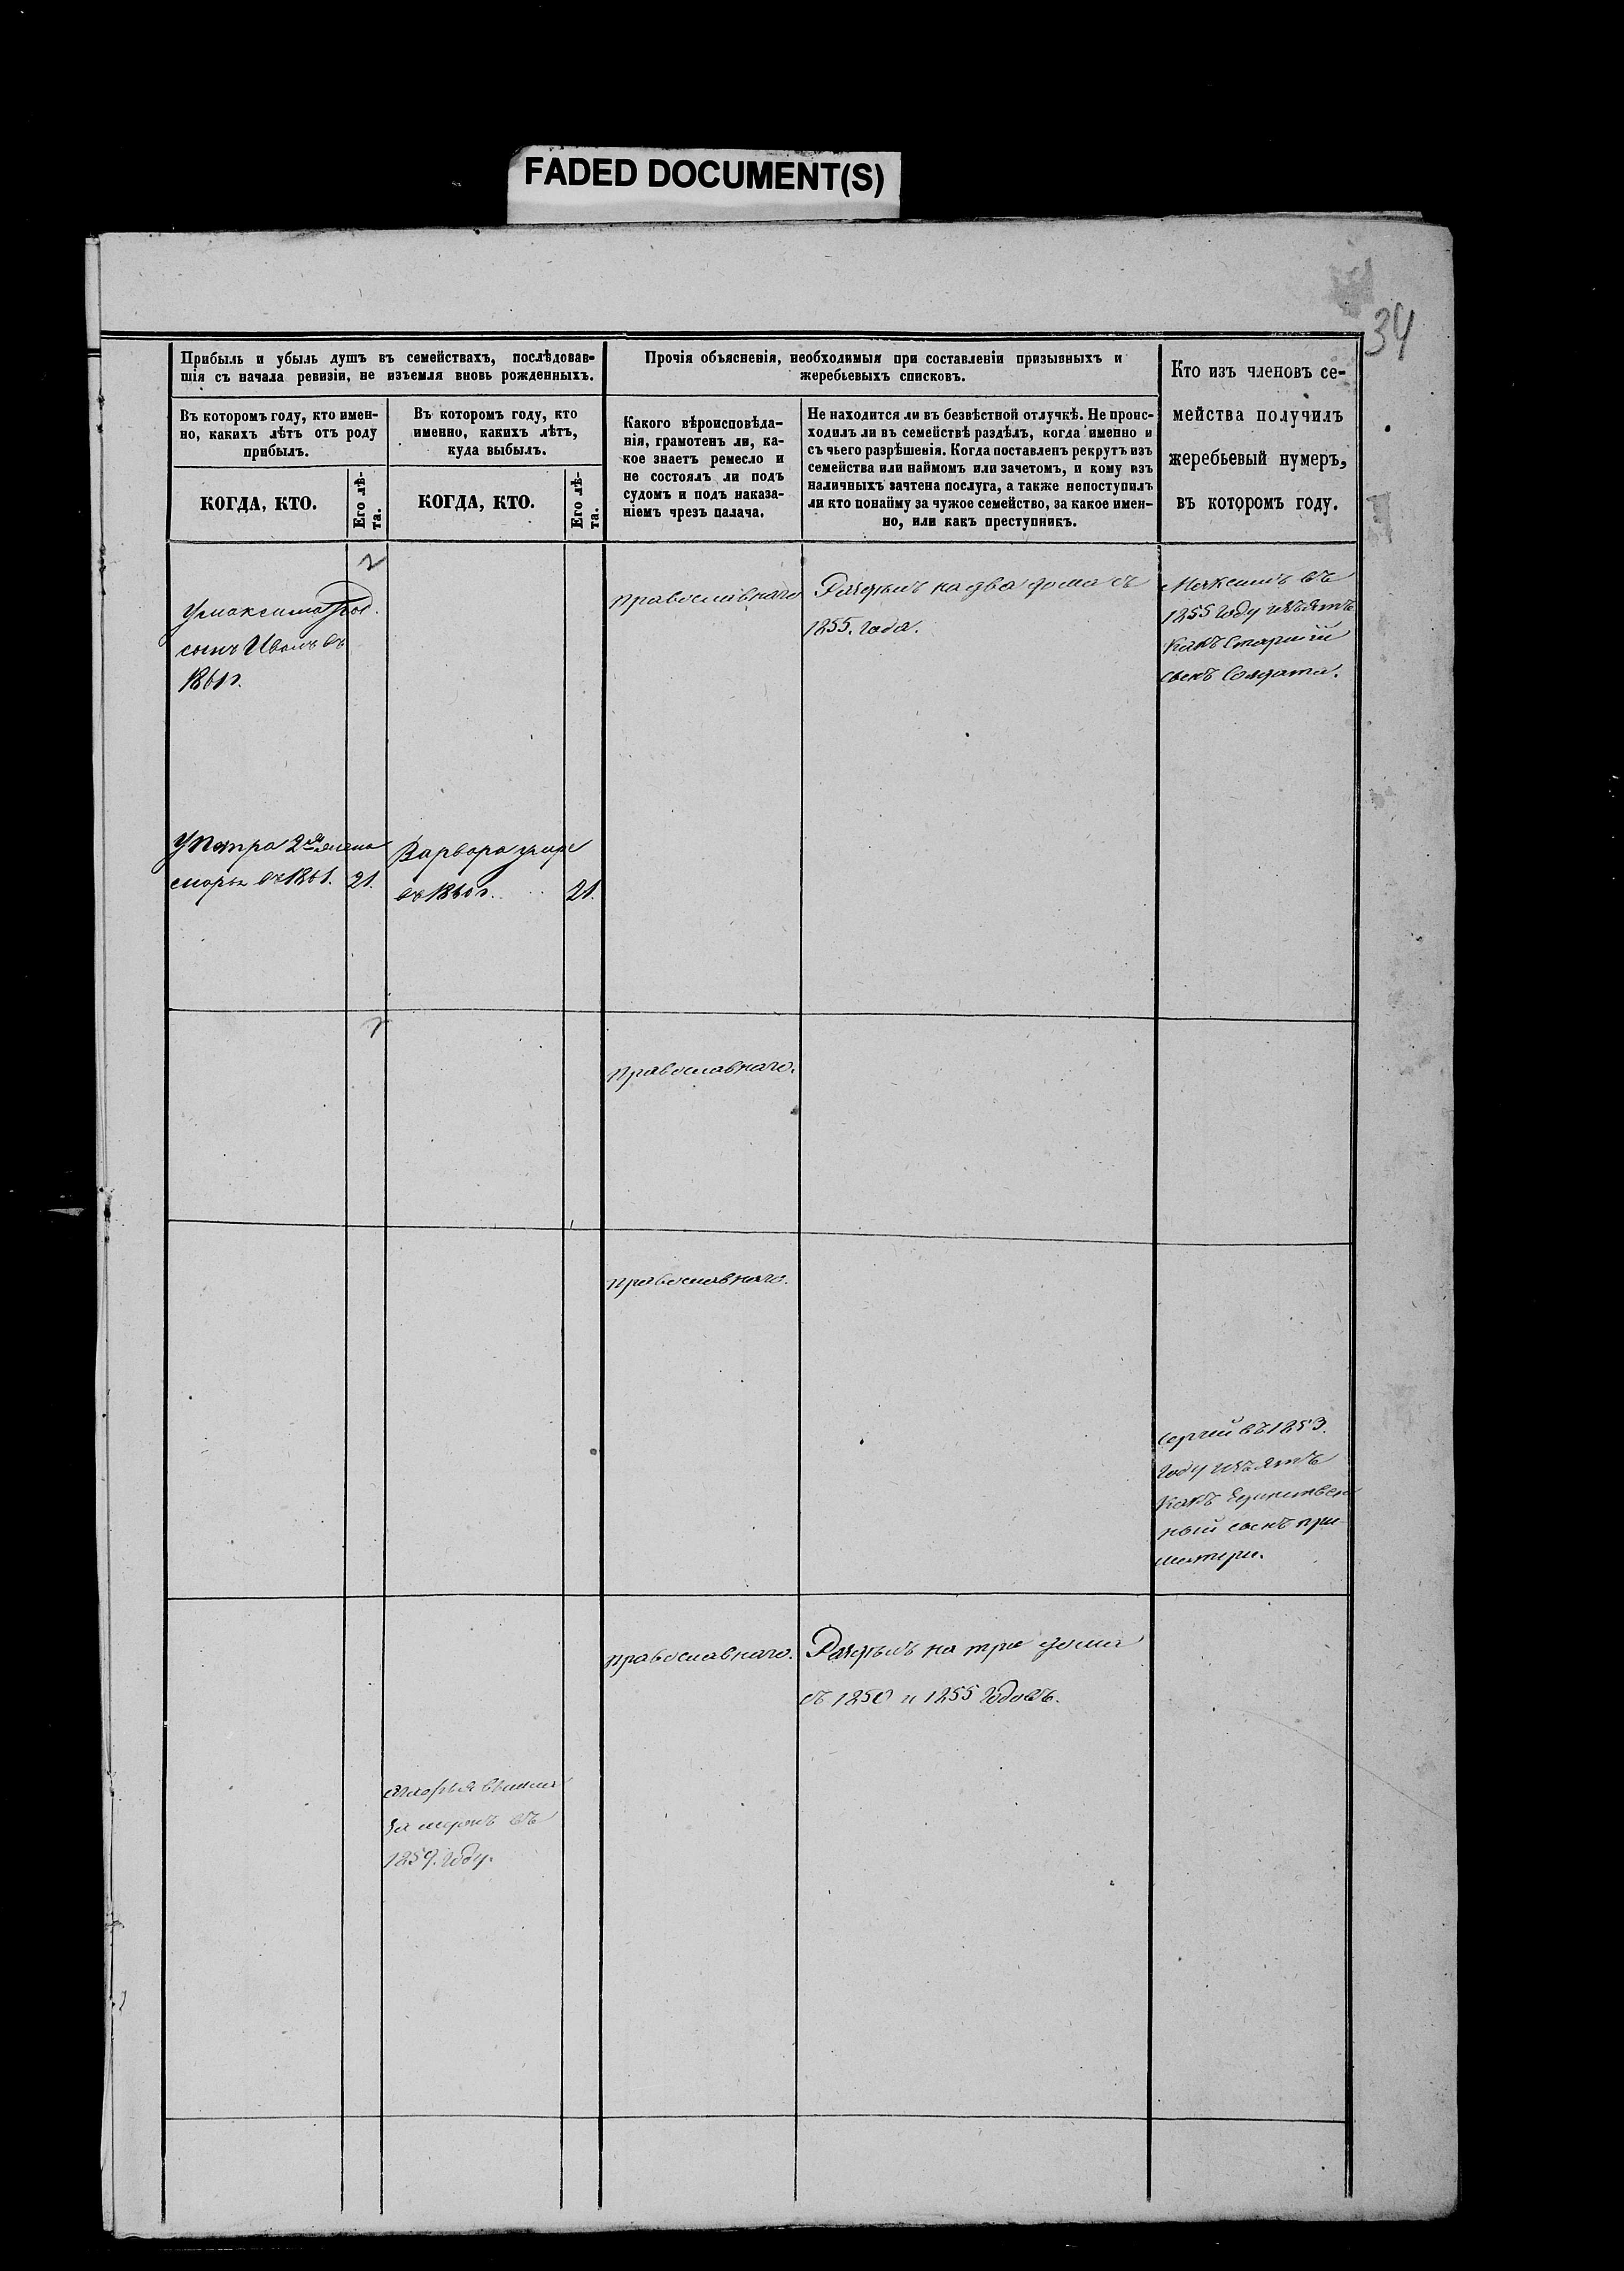 FADED DOCUMENT(S)
34
Прибыль и убыль душъ въ семействахъ, послѣдовав-
шія съ начала ревизіи, не изъемля вновь рожденныхъ.
Прочія объясненія, необходимыя при составленіи призывныхъ и
жеребьевыхъ списковъ.
Кто изъ членовъ се-
мейства получилъ
жеребьевый нумеръ,
въ которомъ году.
Въ которомъ году, кто имен-
но, какихъ лѣтъ отъ роду
прибылъ.
Въ которомъ году, кто
именно, какихъ лѣтъ,
куда выбылъ.
Какого вѣроисповѣда-
нія, грамотенъ ли, ка-
кое знаетъ ремесло и
не состоялъ ли подъ
судомъ и подъ наказа-
ніемъ чрезъ палача.
Не находится ли въ безвѣстной отлучкѣ. Не проис-
ходилъ ли въ семействѣ раздѣлъ, когда именно и
съ чьего разрѣшенія. Когда поставленъ рекрутъ изъ
семейства или наймомъ или зачетомъ, и кому изъ
наличныхъ зачтена послуга, а также непоступилъ
ли кто понайму за чужое семейство, за какое имен-
но, или какъ преступникъ.
КОГДА, КТО.
Его лѣ-
та.
КОГДА, КТО.
Его лѣ-
та.
2
Умаксима
сынъ Иванъ въ
1861 г.
православнаго
Раздѣлъ на два дома съ
1855. года.
Максимъ въ
1855 году изъятъ
какъ Старшій
сынъ Солдата.
У Петра 2я жена
въ 1861. 21.
Варвара
въ 1860 г. 21.
православнаго.
православнаго.
Сергий въ 1853.
году изъятъ
какъ Единствен
ный сынъ при
матери.
православнаго.
Раздѣлъ на три дома
съ 1850 и 1855 годовъ.
Марья вышла
за мужъ въ
1859. году.